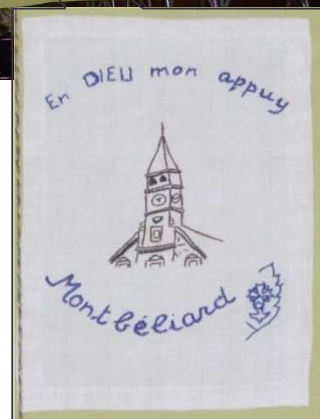 En DIEU mon appuy
Montbéliard